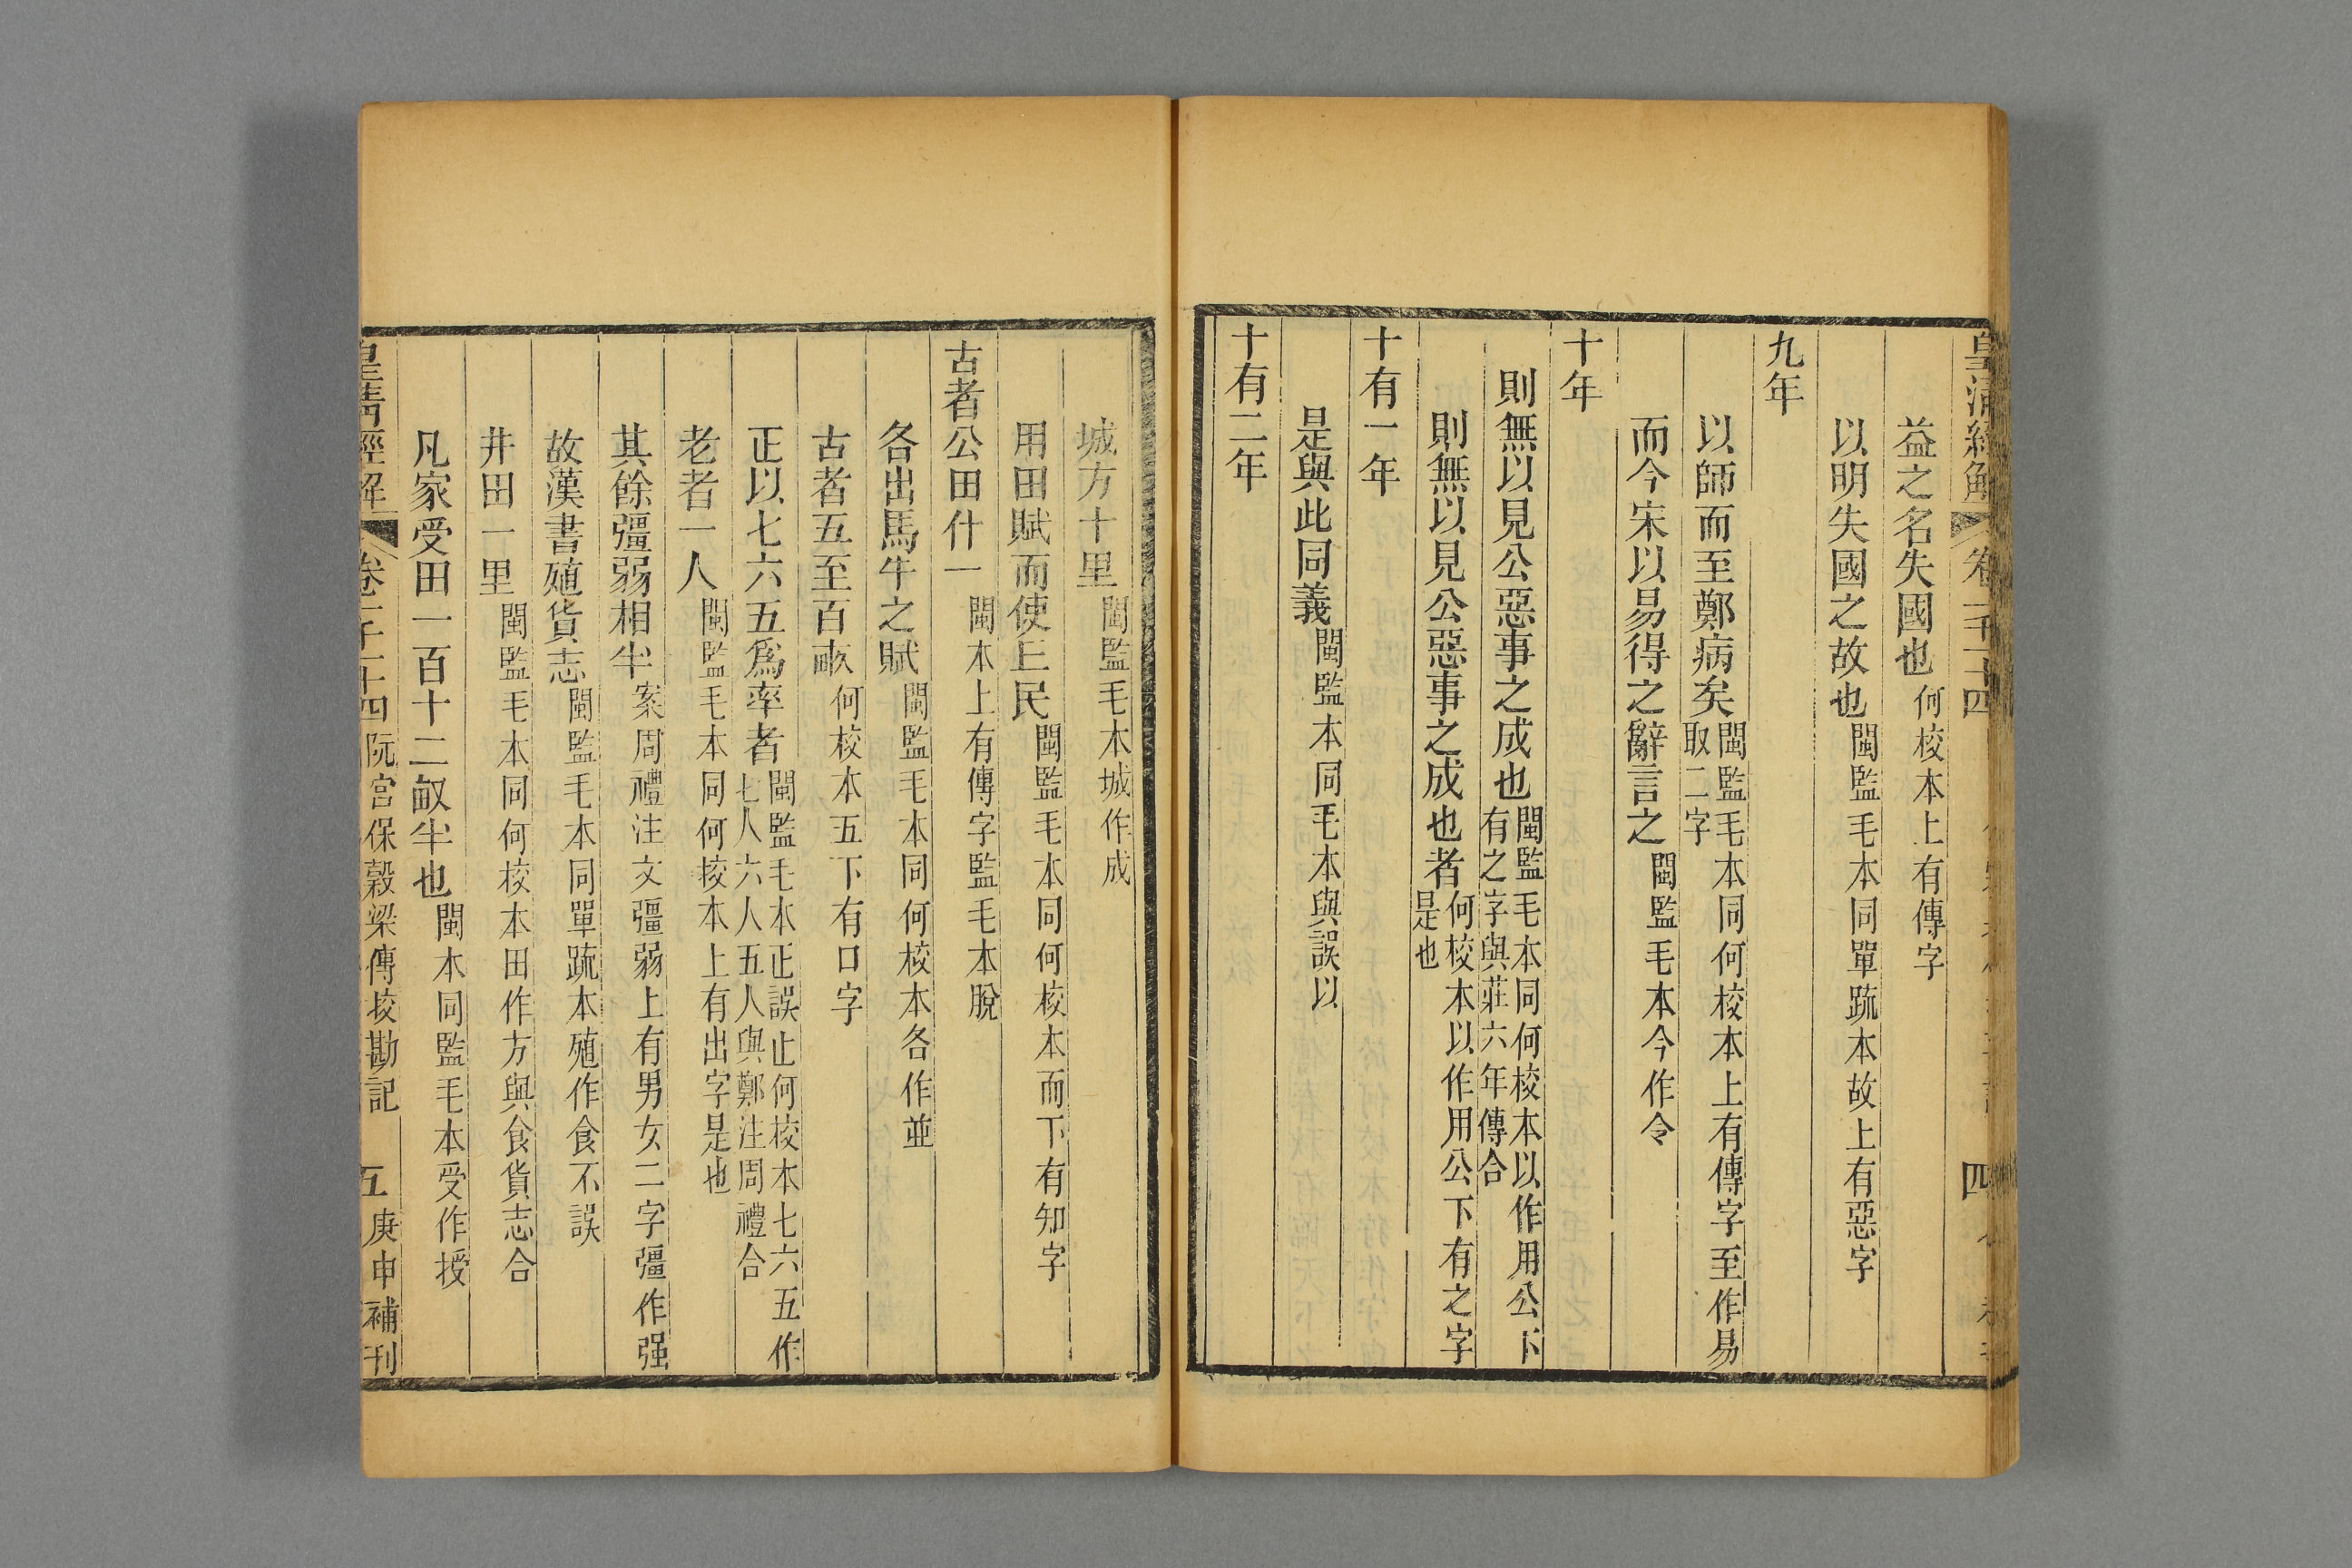 皇清經解 卷一千二十四 四
益之名失國也何校本上有傳字
以明失國之故也閩監毛本同單䟽本故上有惡字
九年
以師而至鄭病矣閩監毛本同何校本上有傳字至作易取二字
而今宋以易得之辭言之閩監毛本今作令
十年
則無以見公惡事之成也閩監毛本同何校本以作用公下有之字與莊六年傳合
則無以見公惡事之成也者何校本以作用公下有之字是也
十有一年
是與此同義閩監本同毛本與誤以
十有二年
城方十里閩監毛本城作成
用田賦而使民閩監毛本同何校本而下有知字
古者公田什一閩本上有傳字監毛本脫
各出馬牛之賦閩監毛本同何校本各作並
古者五至百畝何校本五下有口字
正以七六五爲率者閩監毛本正誤止何校本七六五作七人六人五人與鄭注周禮合
老者一人閩監毛本同何校本上有出字是也
其餘彊弱相半案周禮注文彊弱上有男女二字彊作强
故漢書殖貨志閩監毛本同單䟽本殖作食不誤
井田一里閩監毛本同何校本田作方與食貨志合
凡家受田一百十二畝半也閩本同監毛本受作授
皇清經解 卷一千二十四 阮宮保穀梁傳校勘記 五 庚申補刊